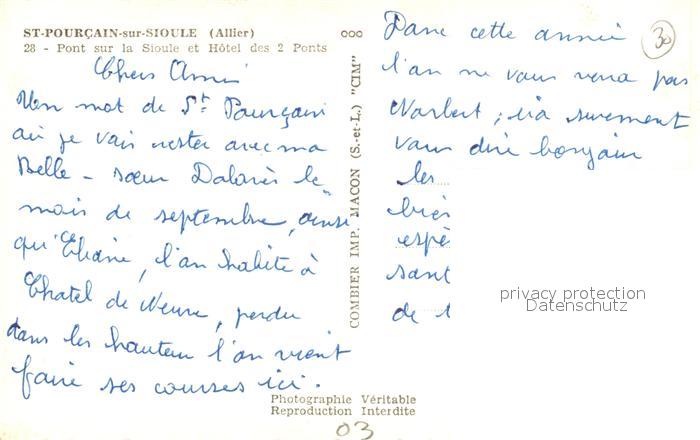 ST-POURÇAIN-sur-SIOULE (Allier)
28 - Pont sur la Sioule et Hôtel des 2 Ponts
Chers Amis
Un mot de St Pourçain
où je vais rester avec ma
Belle-soeur Dolorès le
mois de septembre, ainsi
qu'Eliane, l'on habite à
Chatel de Neuvre, perdu
dans les hauteur l'on vient
faire ses courses ici.
COMBIER IMP. MACON (S.-et-L.) "CIM"
Photographie Véritable
Reproduction Interdite
03
30
Donc cette année
l'on ne vous verra pas
Norbert, ira surement
vous dire bonjour
les
bien
espè
sant
de t
privacy protection
Datenschutz